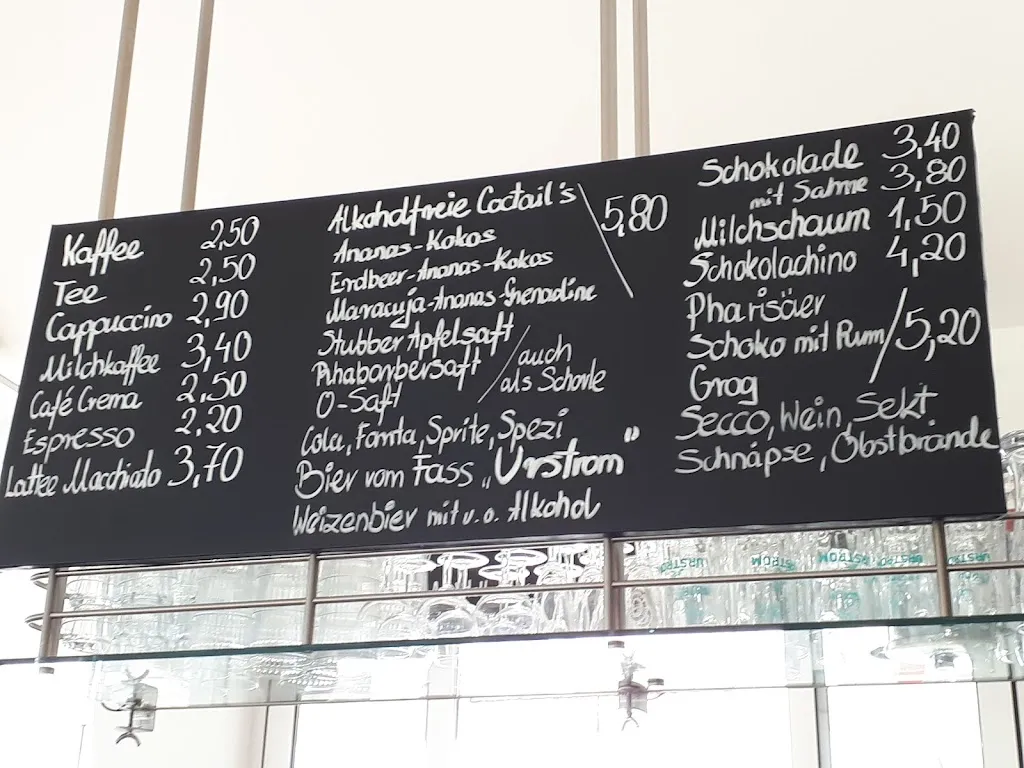 Kaffee 2,50
Tee 2,50
Cappuccino 2,90
Milchkaffee 3,40
Café Crema 2,50
Espresso 2,20
Lattee Macchiato 3,70
Alkoholfreie Coctail's
Ananas-Kokos
Erdbeer-Ananas-Kokos
Maracuja-Ananas-Grenadine
5,80
Stubber Apfelsaft
Rhabarbersaft
O-Saft
auch
als Schorle
Cola, Fanta, Sprite, Spezi
Bier vom Fass „Urstrom"
Weizenbier mit u. o. Alkohol
Schokolade 3,40
mit Sahne 3,80
Milchschaum 1,50
Schokolachino 4,20
Pharisäer
Schoko mit Rum / 5,20
Grog
Secco, Wein, Sekt
Schnäpse, Obstbrände
URSTROM